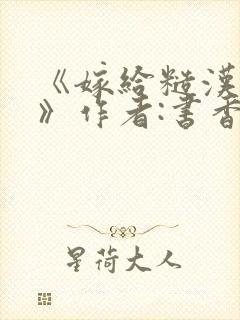 《嫁给糙漢
》作者:書香
星荷大人